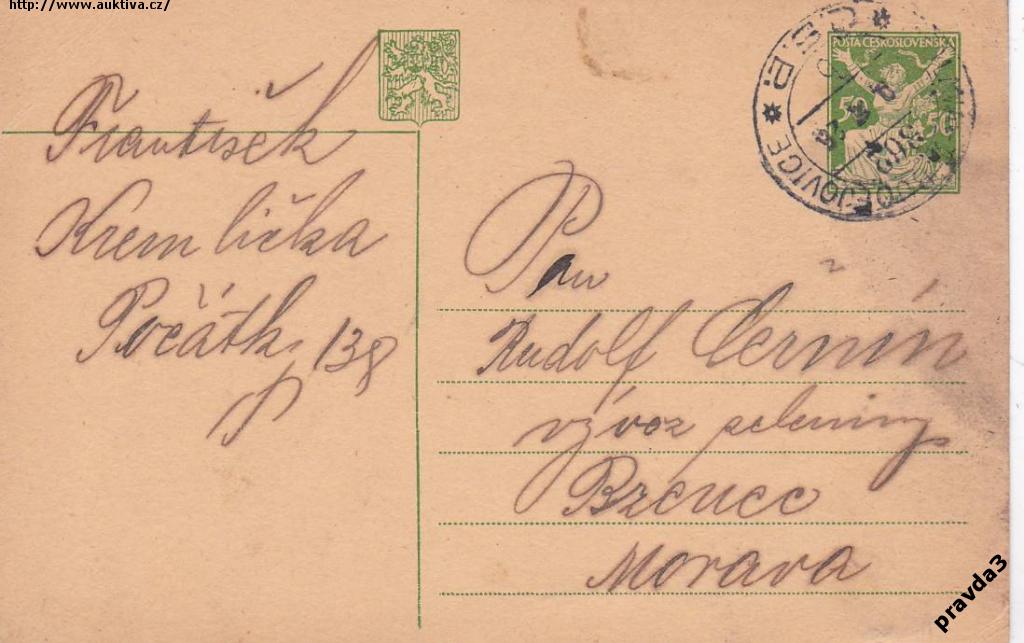 http://www.auktiva.cz/
František
Kremlička
Počátk. 138
POŠTA ČESKOSLOVENSKÁ
50 50
Pan
Rudolf Černín
vývoz zeleniny
Bzenec
Morava
pravda3